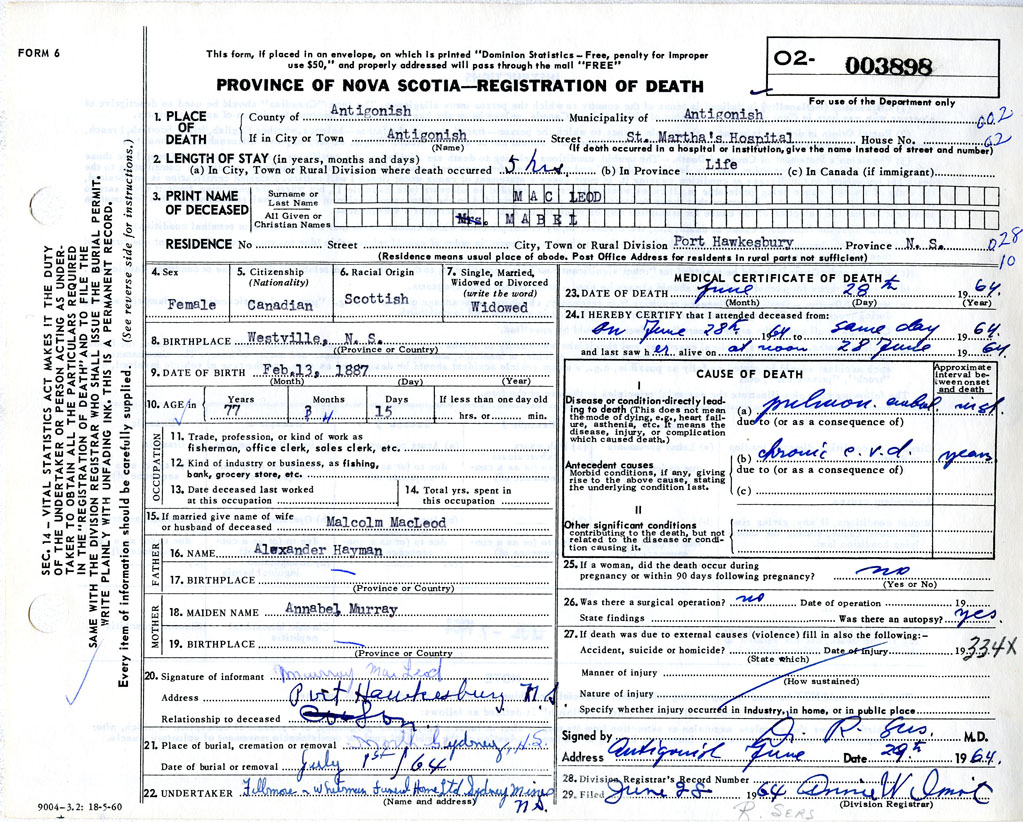 FORM 6
This form, if placed in an envelope, on which is printed "Dominion Statistics – Free, penalty for improper
use $50," and properly addressed will pass through the mail "FREE"
PROVINCE OF NOVA SCOTIA—REGISTRATION OF DEATH
O2- 003898
For use of the Department only
SEC. 14 – VITAL STATISTICS ACT MAKES IT THE DUTY
OF THE UNDERTAKER OR PERSON ACTING AS UNDER-
TAKER TO OBTAIN ALL THE PARTICULARS REQUIRED
IN THE "REGISTRATION OF DEATH" AND TO FILE THE
SAME WITH THE DIVISION REGISTRAR WHO SHALL ISSUE THE BURIAL PERMIT.
WRITE PLAINLY WITH UNFADING INK. THIS IS A PERMANENT RECORD.
Every item of information should be carefully supplied. (See reverse side for instructions.)
1. PLACE OF DEATH
County of Antigonish Municipality of Antigonish 002
If in City or Town Antigonish Street St. Martha's Hospital House No. 02
(Name) (If death occurred in a hospital or institution, give the name instead of street and number)
2. LENGTH OF STAY (in years, months and days)
(a) In City, Town or Rural Division where death occurred 5 hrs. (b) In Province Life (c) In Canada (if immigrant)
3. PRINT NAME OF DECEASED
Surname or Last Name MAC LEOD
All Given or Christian Names Mrs. MABEL
RESIDENCE No Street City, Town or Rural Division Port Hawkesbury Province N. S. 028
(Residence means usual place of abode. Post Office Address for residents in rural parts not sufficient) 10
4. Sex Female
5. Citizenship (Nationality) Canadian
6. Racial Origin Scottish
7. Single, Married, Widowed or Divorced (write the word) Widowed
8. BIRTHPLACE Westville, N. S.
(Province or Country)
9. DATE OF BIRTH Feb.13, 1887
(Month) (Day) (Year)
10. AGE in Years 77 Months 3 4 Days 15 If less than one day old hrs. or min.
OCCUPATION
11. Trade, profession, or kind of work as
fisherman, office clerk, sales clerk, etc.
12. Kind of industry or business, as fishing,
bank, grocery store, etc.
13. Date deceased last worked
at this occupation
14. Total yrs. spent in
this occupation
15. If married give name of wife
or husband of deceased Malcolm MacLeod
FATHER
16. NAME Alexander Hayman
17. BIRTHPLACE —
(Province or Country)
MOTHER
18. MAIDEN NAME Annabel Murray
19. BIRTHPLACE —
(Province or Country
20. Signature of informant Murray MacLeod
Address Port Hawkesbury N.S
Relationship to deceased Son.
21. Place of burial, cremation or removal North Sydney, N.S.
Date of burial or removal July 1st/64
22. UNDERTAKER Fillmore & Whitman Funeral Home Ltd Sydney Mines
(Name and address) N.S.
9004-3,2: 18-5-60
MEDICAL CERTIFICATE OF DEATH
23. DATE OF DEATH June 28th 1964.
(Month) (Day) (Year)
24. I HEREBY CERTIFY that I attended deceased from:
on June 28th 1964 to same day 1964.
and last saw her alive on at noon 28 June 1964
CAUSE OF DEATH
Approximate interval between onset and death
I
Disease or condition directly lead-
ing to death (This does not mean
the mode of dying, e.g., heart fail-
ure, asthenia, etc. It means the
disease, injury, or complication
which caused death.)
(a) pulmon. embol. inst
due to (or as a consequence of)
Antecedent causes
Morbid conditions, if any, giving
rise to the above cause, stating
the underlying condition last.
(b) chronic c.v.d. years
due to (or as a consequence of)
(c)
II
Other significant conditions
contributing to the death, but not
related to the disease or condi-
tion causing it.
25. If a woman, did the death occur during
pregnancy or within 90 days following pregnancy? no
(Yes or No)
26. Was there a surgical operation? no Date of operation 19
State findings Was there an autopsy? yes
27. If death was due to external causes (violence) fill in also the following:–
Accident, suicide or homicide? Date of injury 19 334X
(State which)
Manner of injury
(How sustained)
Nature of injury
Specify whether injury occurred in industry, in home, or in public place
Signed by Dr. R. Sers M.D.
Address Antigonish Date June 29th 1964.
28. Division Registrar's Record Number
29. Filed June 28 1964
(Division Registrar)
R. SERS